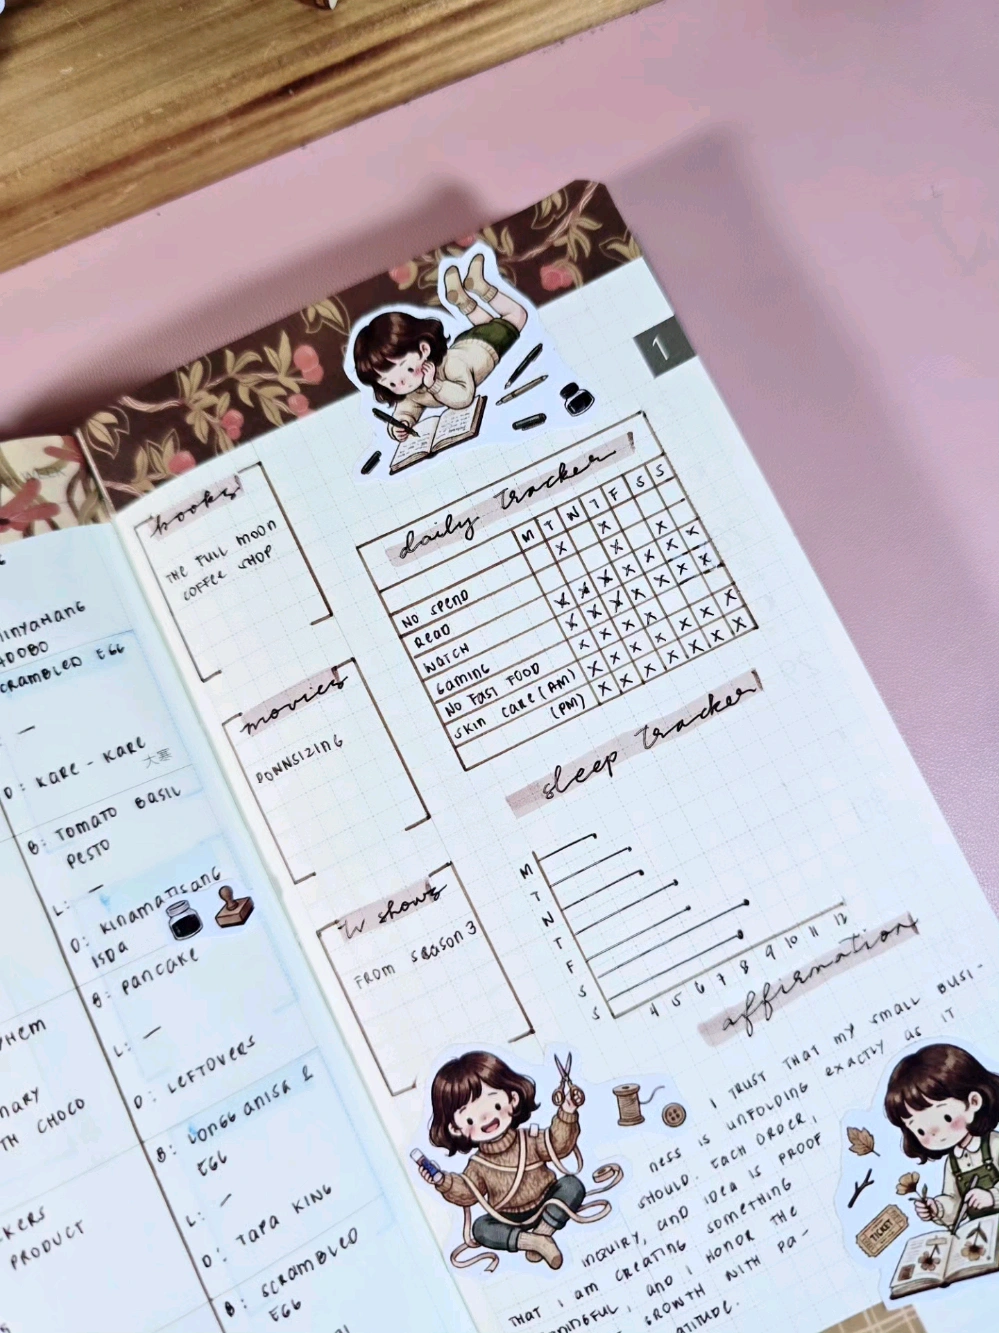 INYAHANG
ADOBO
SCRAMBLED EGG
—
D: KARE - KARE
大寒
B: TOMATO BASIL
PESTO
L: —
D: KINAMATISANG
ISDA
B: PANCAKE
L: —
D: LEFTOVERS
B: LONGGANISA &
EGG
L: —
D: TAPA KING
B: SCRAMBLED
EGG
TH CHOCO
PRODUCT
1
books
THE FULL MOON
COFFEE SHOP
movies
DOWNSIZING
tv shows
FROM SEASON 3
daily tracker
M T W T F S S
NO SPEND
READ
WATCH
GAMING
NO FAST FOOD
SKIN CARE (AM)
(PM)
sleep tracker
M
T
W
T
F
S
S
4 5 6 7 8 9 10 11 12
affirmation
I TRUST THAT MY SMALL BUSI-
NESS IS UNFOLDING EXACTLY AS IT
SHOULD. EACH ORDER,
INQUIRY, AND IDEA IS PROOF
THAT I AM CREATING SOMETHING
NINGFUL, AND I HONOR THE
GROWTH WITH PA-
ATITUDE.
TICKET